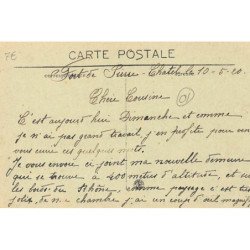 7€
CARTE POSTALE
Fort de Pierre-Chatel le 10-5-20
Chère Cousine
C'est aujourd'hui Dimanche et comme
je n'ai pas grand travail j'en profite pour en-
vous ces quelques mots.
Je vous envoie ci joint ma nouvelle demeure
qui se trouve à 400 mètres d'altitude, et sur
les bords du Rhône, comme paysage c'est très
joli, de ma chambre j'ai un coup d'œil magnif